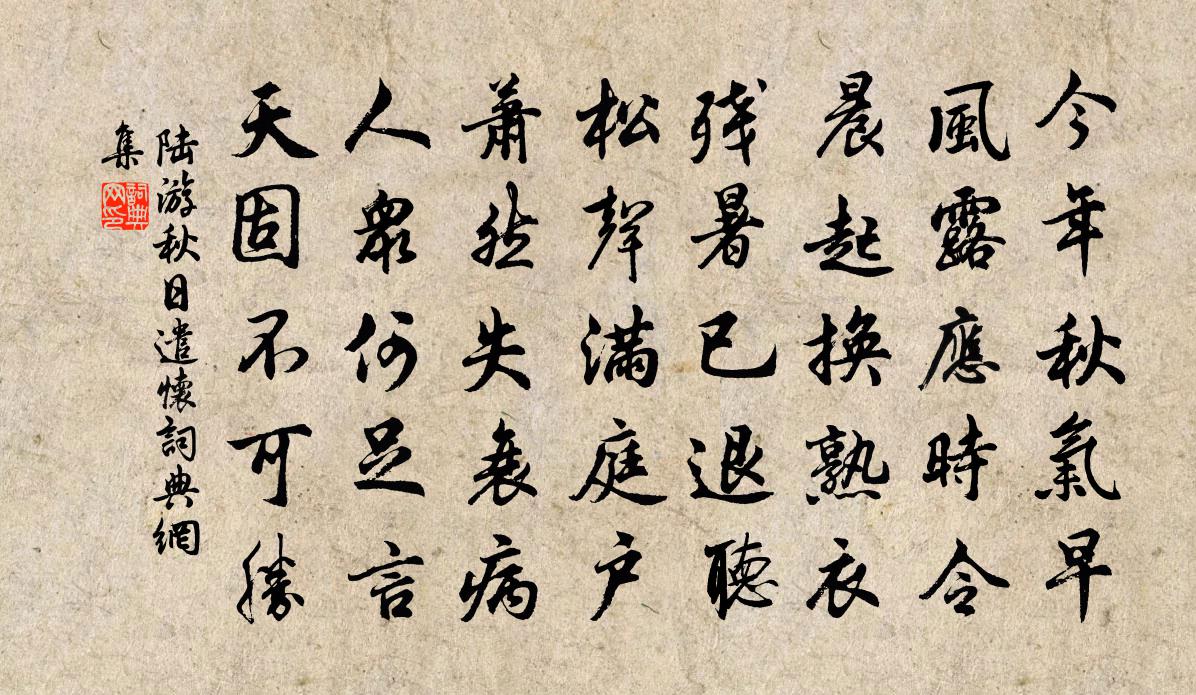 今年秋氣早
風露應時令
晨起換熟衣
残暑已退聽
松聲滿庭户
蕭然失衰病
人衆何足言
天固不可勝
陆游秋日遣懷詞典網
集
詞典网印